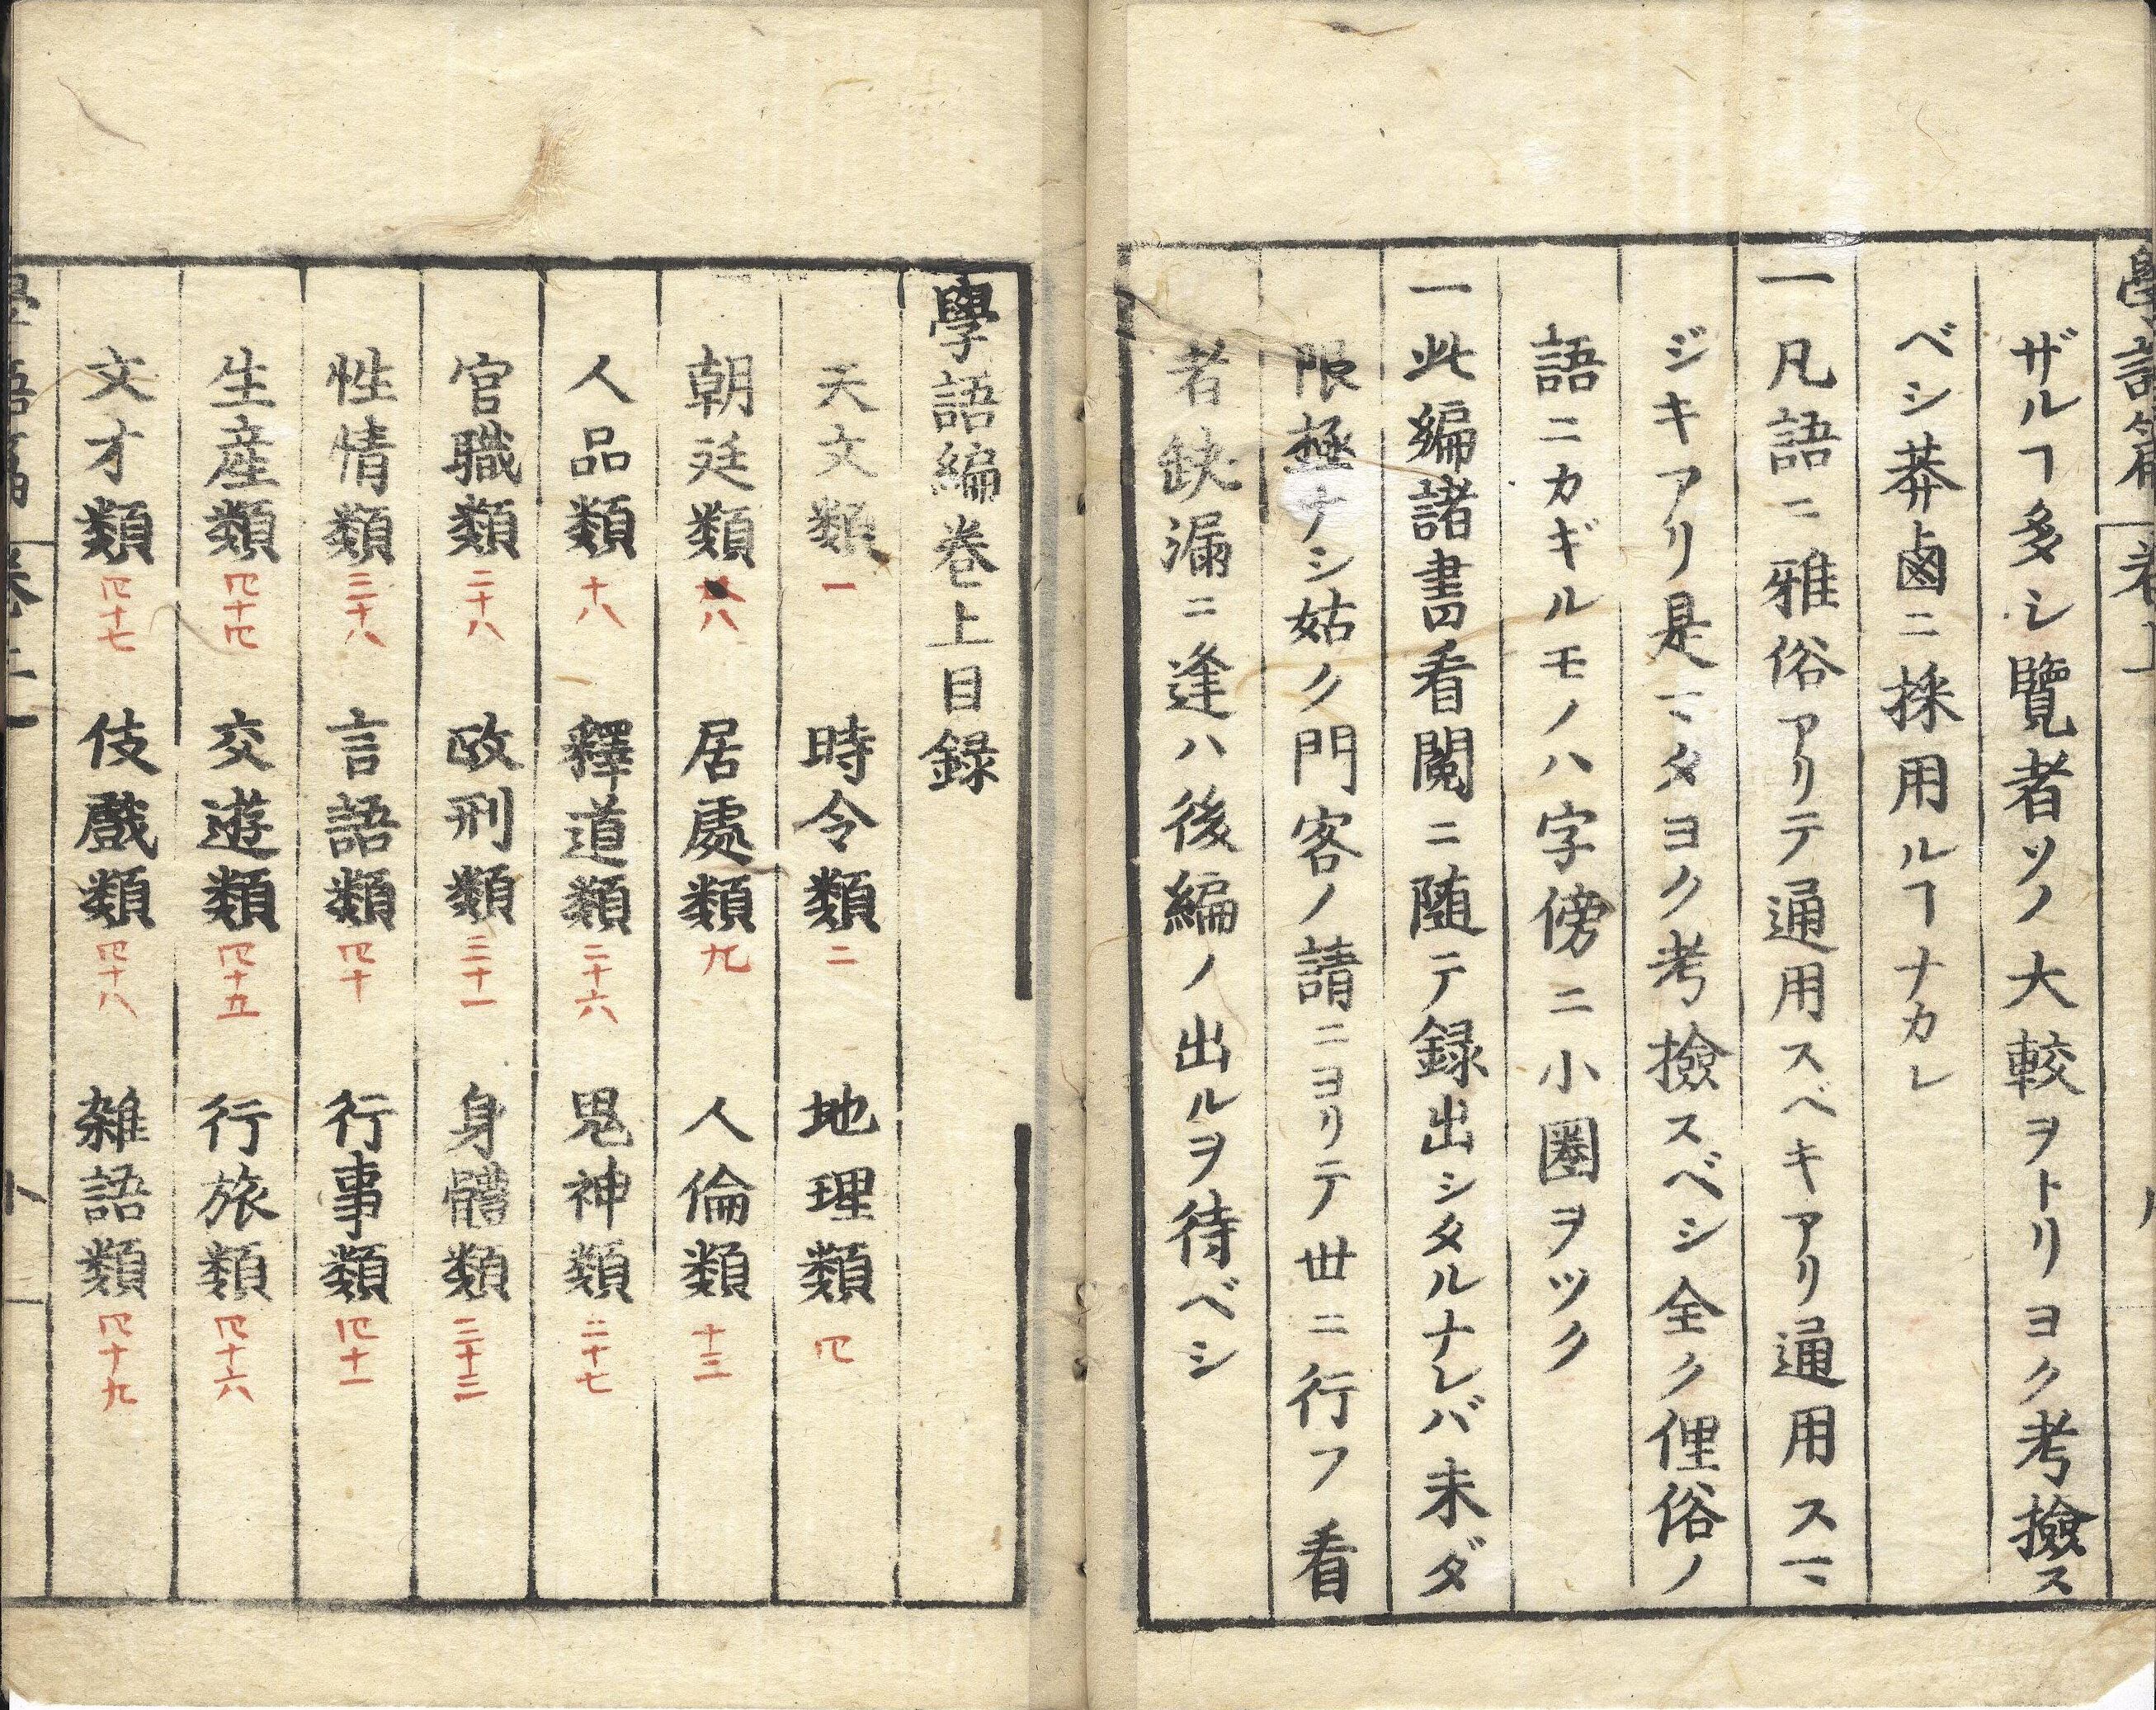 ザルヿ多シ覽者ソノ大較ヲトリヨク考撿ス
ベシ莽鹵ニ採用ルヿナカレ
一凡語ニ雅俗アリテ通用スベキアリ通用スマ
ジキアリ是マタヨク考撿スベシ全ク俚俗ノ
語ニカギルモノハ字傍ニ小圏ヲツク
一此編諸書看閲ニ随テ録出シタルナレバ未ダ
限極ナシ姑ク門客ノ請ニヨリテ丗ニ行フ看
者缺漏ニ逢ハ後編ノ出ルヲ待ベシ
學語編卷上目録
天文類 一 時令類 二 地理類 四
朝廷類 八 居處類 九 人倫類 十三
人品類 十八 釋道類 二十六 鬼神類 二十七
官職類 二十八 政刑類 三十一 身體類 三十三
性情類 三十八 言語類 四十 行事類 四十一
生産類 四十四 交遊類 四十五 行旅類 四十六
文才類 四十七 伎戲類 四十八 雑語類 四十九